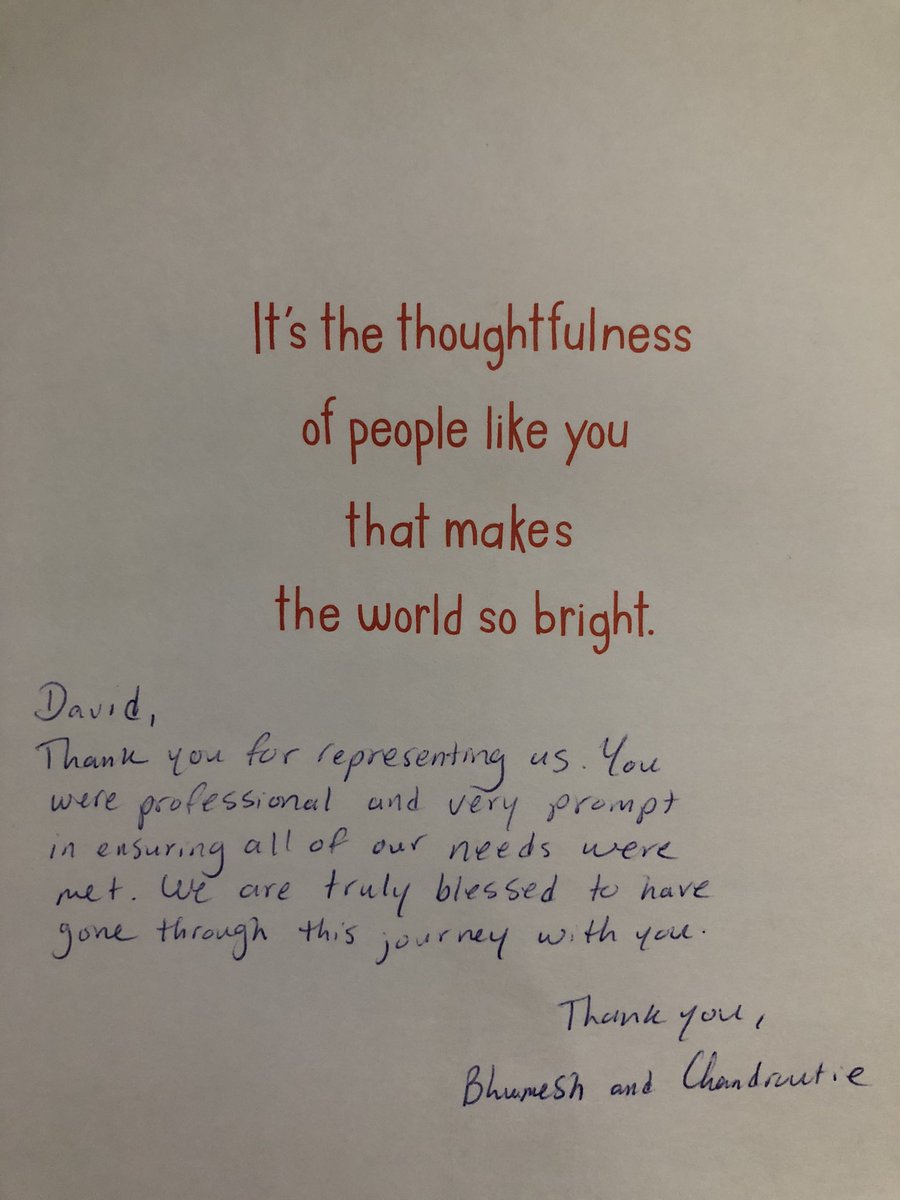 It's the thoughtfulness
of people like you
that makes
the world so bright.
David,
Thank you for representing us. You
were professional and very prompt
in ensuring all of our needs were
met. We are truly blessed to have
gone through this journey with you.
Thank you,
Bhumesh and Chandrautie